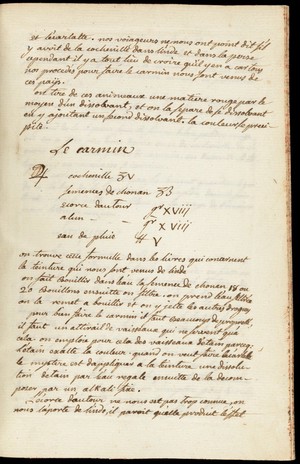 et l'écarlatte. nos voiageurs ne nous ont point dit s'il
y avoit de la cochenille dans l'inde et dans la perse
cependant il y a tout lieu de croire qu'il y en a car tous
nos procedés pour faire le carmin nous sont venus de
ces païs.
on tire de ces animeaux une matiere rouge par le
moyen d'un dissolvant, et on la separe de ce dissolvant
en y ajoutant un second dissolvant. la couleur se preci
pite.
Le carmin
cochenille ℥V
semences de chouan ℥ß
écorce d'autour gr XVIII
alun gr XVIII
eau de pluie ℔ V
on trouve cette formulle dans les livres qui concernent
la teinture qui nous sont venus de l'inde
on fait bouillir dans l'eau la semence de chouan 18 ou
20 bouillons ensuitte on filtre. on prend l'eau filtrée
on la remet a bouillir et on y jette les autres drogues
pour bien faire le carmin il faut beaucoup de propreté,
il faut un attirail de vaisseaux qui ne servent qu'a
cela. on emploie pour cela des vaisseaux d'étain parceq
l'étain exalte la couleur. quand on veut faire l'écarlatte
le mystere est d'appliquer a la teinture une dissolu
tion d'étain par l'eau regale ensuitte de la decom
poser par un alkali fixe.
L'écorce d'autour ne nous est pas trop connue, on
nous l'aporte de l'inde, il paroit qu'elle produit l'effet